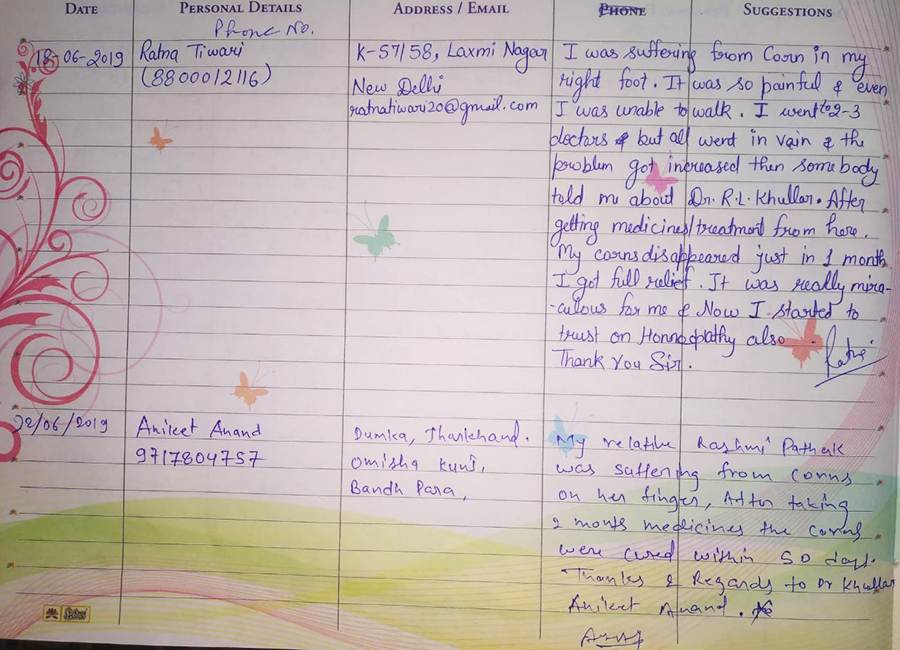 DATE PERSONAL DETAILS ADDRESS / EMAIL PHONE SUGGESTIONS
Phone No.
18-06-2019
Ratna Tiwari
(8800012116)
K-57/58, Laxmi Nagar
New Delhi
ratnatiwari20@gmail.com
I was suffering from Corn in my
right foot. It was so painful & even
I was unable to walk. I went to 2-3
doctors & but all went in vain & the
problem got increased then somebody
told me about Dr. R.L. Khullar. After
getting medicines/treatment from here.
My corns disappeared just in 1 month
I got full relief. It was really mira-
-culous for me & Now I started to
trust on Homoeopathy also.
Thank You Sir.
22/06/2019
Aniket Anand
9717804757
Dumka, Jharkhand.
Omisha Kunj,
Bandh Para,
My relative Rashmi Pathak
was suffering from corns
on her finger, After taking
2 monts medicines the corns
were cured within 50 days.
Thanks & Regards to Dr Khullar
Aniket Anand.